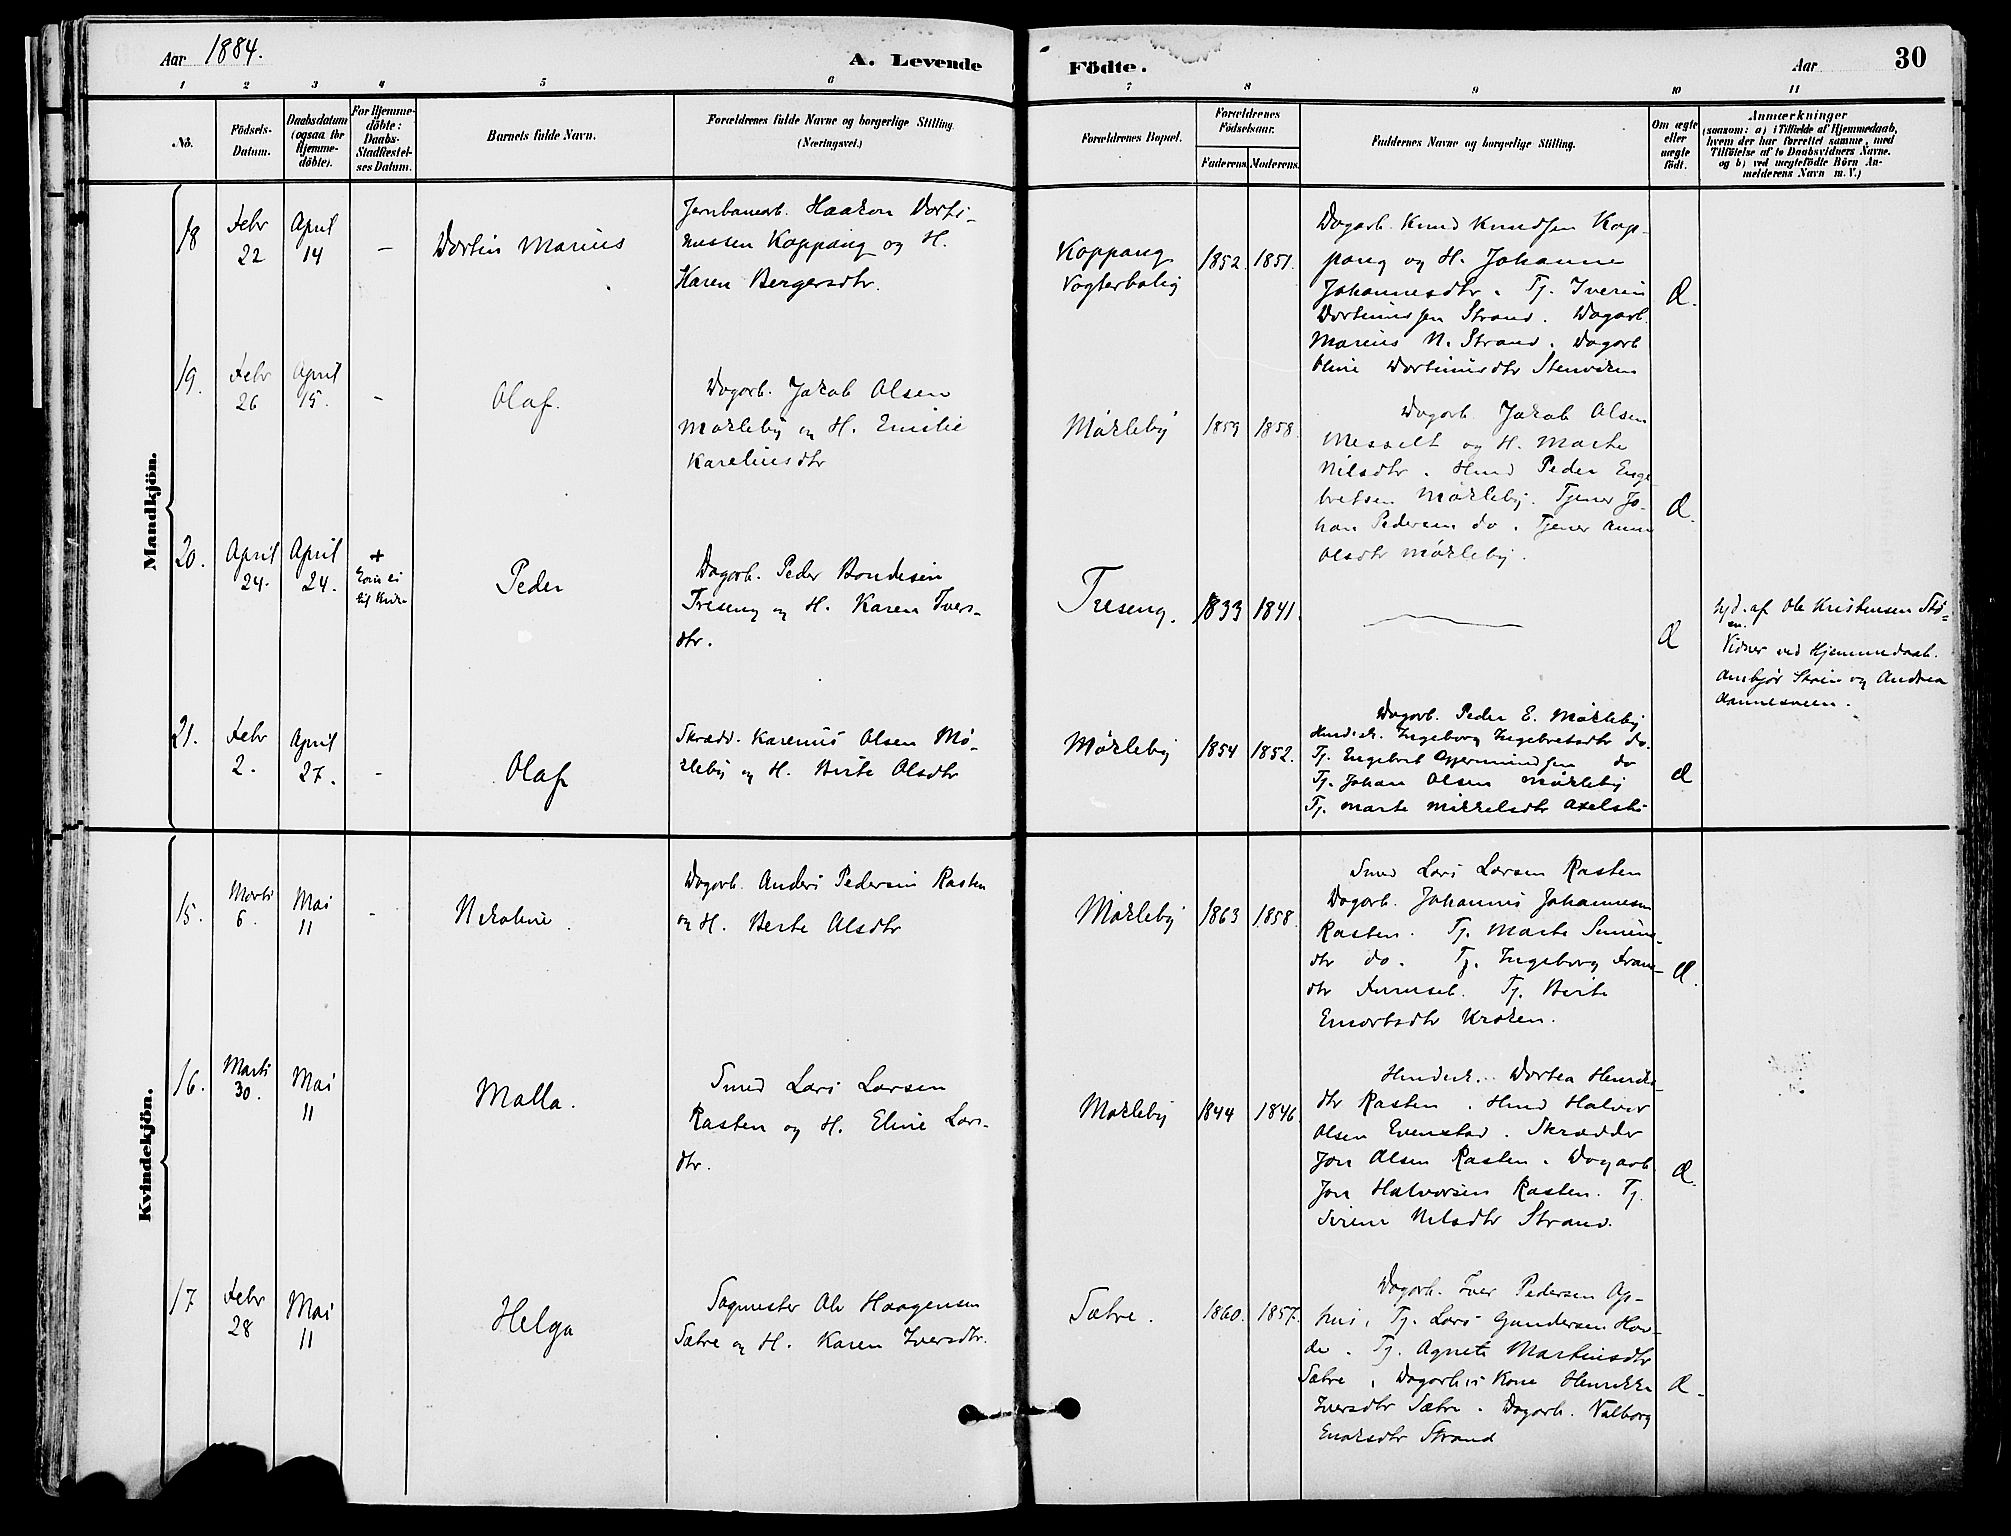 Aar 1884.
A. Levende
Födte.
Aar
30
1 2 3 4 5 6 7 8 9 10 11
No.
Födsels-
Datum.
Daabsdatum
(ogsaa for
Hjemme-
döbte).
For Hjemme-
döbte:
Daabs-
Stadfæstel-
ses Datum.
Barnets fulde Navn.
Forældrenes fulde Navne og borgerlige Stilling
(Næringsvei.)
Forældrenes Bopæl.
Forældrenes
Födselsaar.
Faderens. Moderens.
Faddernes Navne og borgerlige Stilling.
Om ægte
eller
uægte
födt.
Anmærkninger
(saasom: a) i Tilfælde af Hjemmedaab,
hvem der har forrettet samme, med
Tilföielse af to Daabsvidners Navne.
og b) ved uægtefödte Börn An-
melderens Navn m. V.)
Mandkjön.
18
Febr
22
April
14
-
Dortin Marius
Jernbanearb. Haakon Dorti-
nussen Koppang og H.
Karen Bergersdtr.
Koppang
Vogterbolig
1852. 1851.
Dagarb. Knud Knudsen Kop-
pang og H. Johanne
Johannesdtr. Tj. Iverin
Dortinussen Strand. Dagarb.
Marius N. Strand. Dagarb
Oline Dortinusdtr Stenviken
Æ.
19.
Febr
26
April
15.
-
Olaf.
Dagarb. Jakob Olsen
Mørkleby og H. Emilie
Kareliusdtr
Mørkleby
1859 1858.
Dagarb. Jakob Olsen
Messelt og H. Marte
Nilsdtr. Husmd Peder Enge-
bretsen Mørkleby. Tjener Jo-
han Pedersen do. Tjener Anne
Olsdtr Mørkleby.
Æ.
20.
April
24.
April
24.
+
Peder
Dagarb. Peder Bondesen
Treseng og H. Karen Ivers-
dtr.
Treseng.
1833 1841.
Æ
hjd. af Ole Kristensen Stø-
en.
Vidner ved Hjemmedaab.
Ambjør Støen og Andrea
21.
Febr
2.
April
27.
-
Olaf
Skrædd. Karenius Olsen Mø-
rkleby og H. Berte Olsdtr
Mørkleby
1854 1852.
Dagarb. Peder E. Mørkleby
Ingeborg Ingebretsdtr do.
Tj. Engebret Gjermundsen do
Tj. Johan Olsen Mørkleby
Tj. Marte Mikkelsdtr
Æ
Kvindekjön.
15.
Marts
6.
Mai
11
-
Nikoline.
Dagarb. Anders Pedersen Rasten
og H. Berte Olsdtr
Mørkleby
1863 1858.
Smed Lars Larsen Rasten
Dagarb. Johannes Johannesen
Rasten. Tj. Marte Simens-
dtr do. Tj. Ingeborg Frans-
dtr Tj. Berte
Kroken.
Æ.
16.
Marts
30.
Mai
11
Malla.
Smed Lars Larsen
Rasten og H. Eline Lars-
dtr.
Mørkleby
1844 1846.
Dortea Henriks-
dtr Rasten. Husmd Halvor
Olsen Evenstad. Skrædder
Jon Olsen Rasten. Dagarb
Jon Halvorsen Rasten. Tj.
Sirene Nilsdtr Strand.
Æ.
17
Febr
28
Mai
11
Helga
Sagmester Ole Haagensen
Sætre og H. Karen Iversdtr.
Sætre.
1860. 1857.
Dagarb. Iver Pedersen Op-
hus. Tj. Lars Gundersen Hov-
de. Tj. Agnete Martinsdtr
Sætre. Dagarb.s Kone Henrikke
Iversdtr Sætre. Dagarb. Valborg
Enoksdtr Strand
Æ.